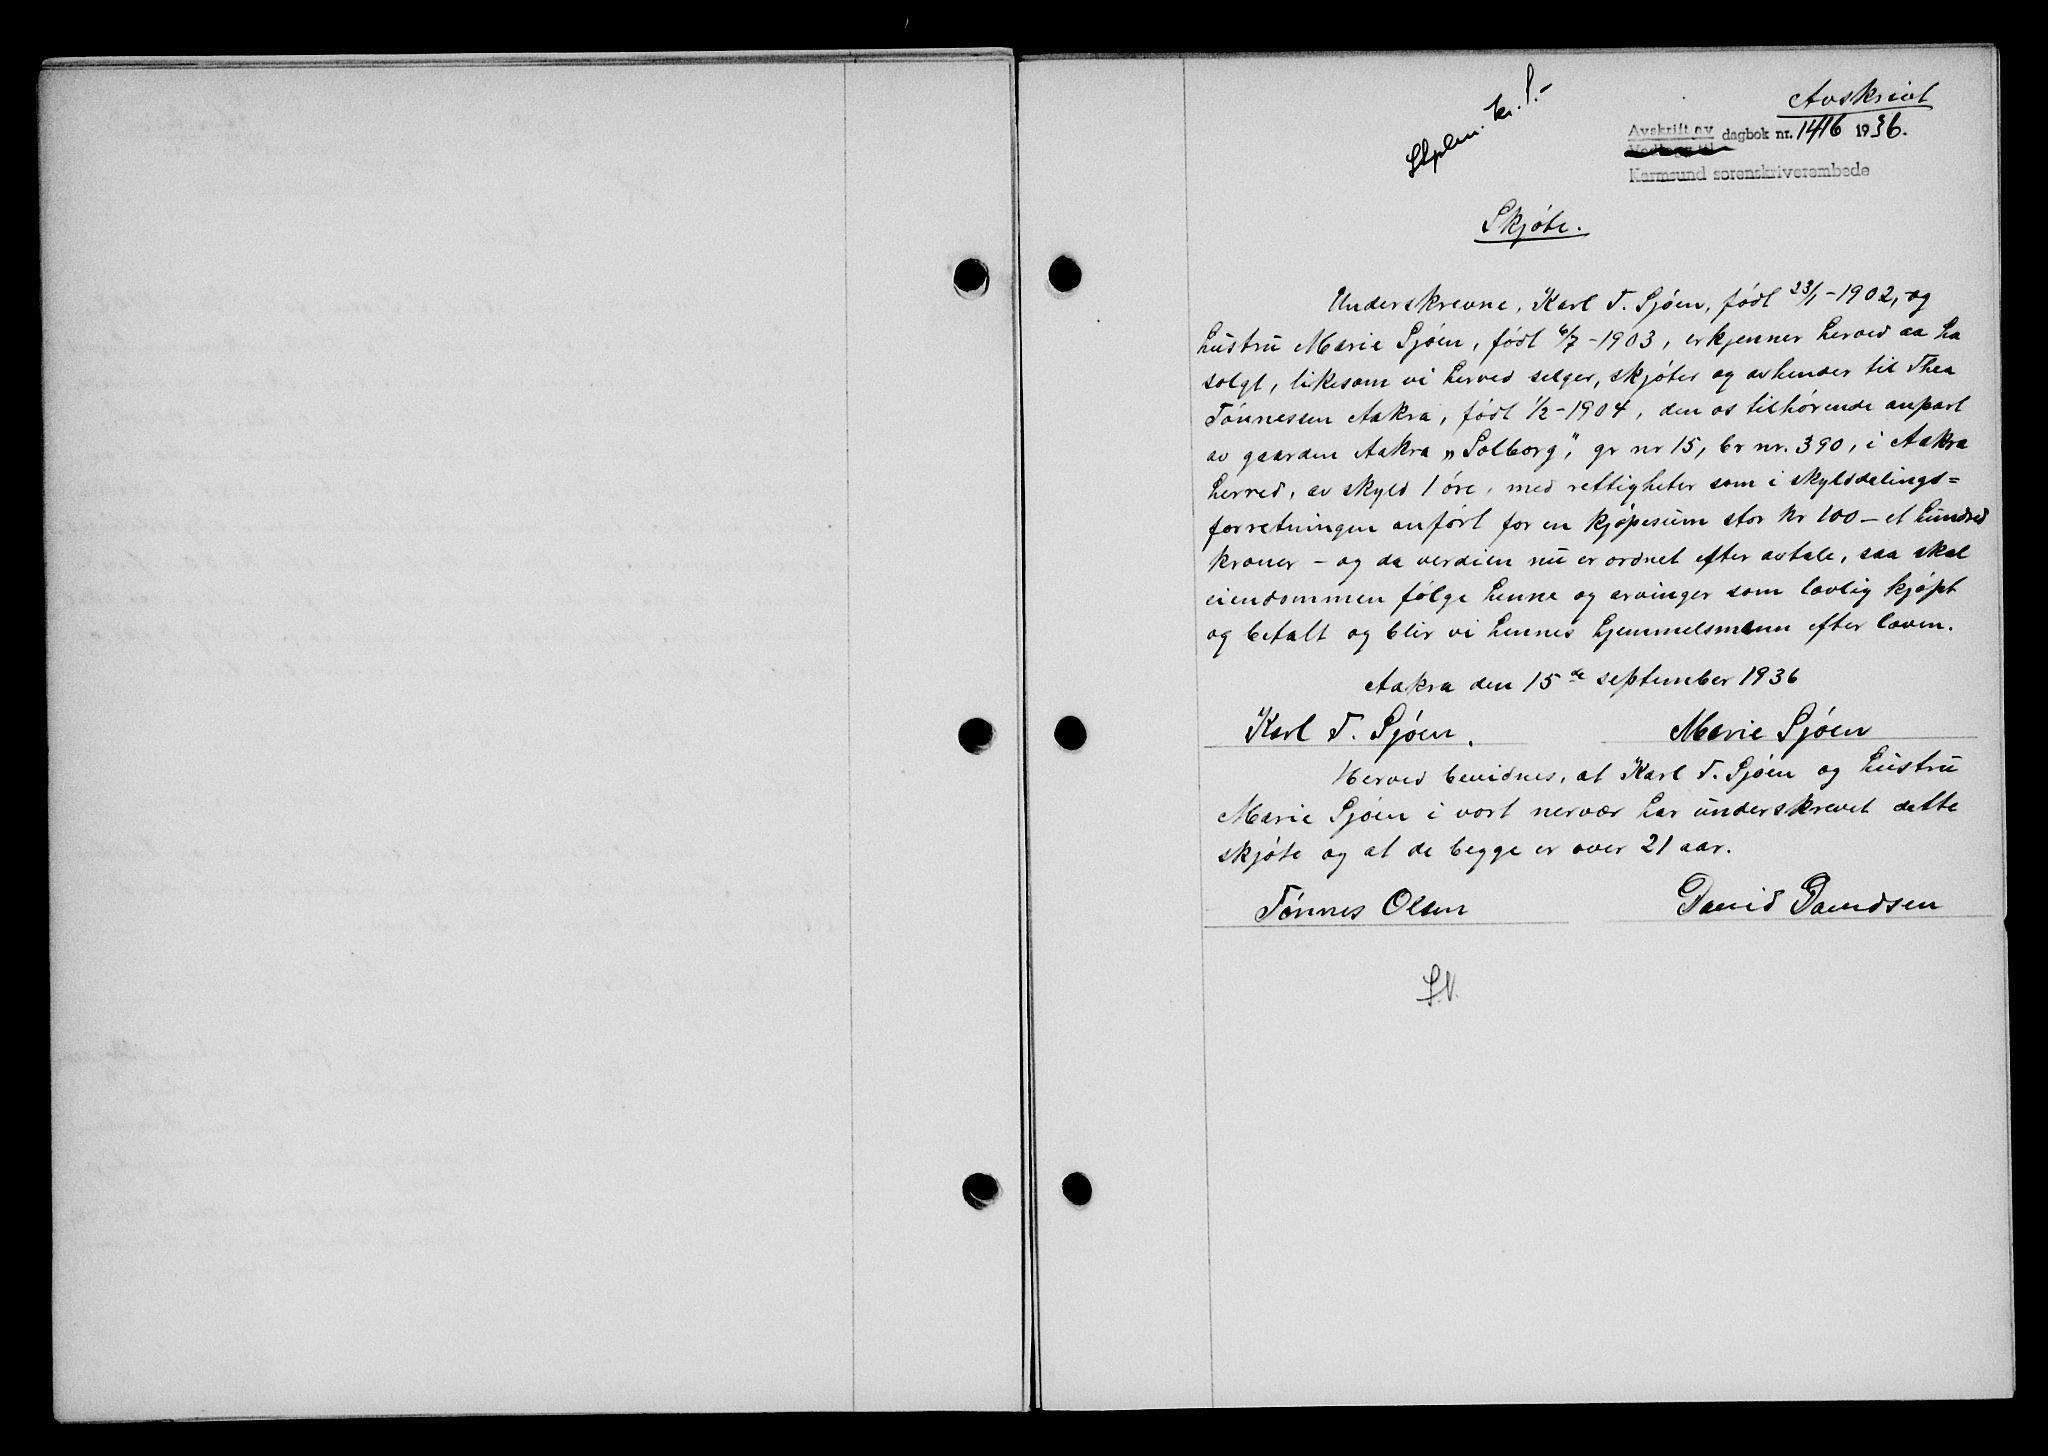 Avskrift
Stplm. kr. 1.-
Avskrift av dagbok nr. 1416 1936.
Vedlegg til
Karmsund sorenskriverembede
Skjøte.
Underskrevne, Karl T. Sjøen, født 23/1-1902, og
hustru Marie Sjøen, født 6/7-1903, erkjenner herved aa ha
solgt, likesom vi herved selger, skjøter og avhender til Thea
Tønnessen Aakra, født 1/2-1904, den os tilhørende anpart
av gaarden Aakra „Solborg", gr nr 15, br nr. 390, i Aakra
herred, av skyld 1 øre, med rettigheter som i skylddelings=
forretningen anført for en kjøpesum stor kr 100 - et hundred
kroner - og da verdien nu er ordnet efter avtale, saa skal
eiendommen følge henne og arvinger som lovlig kjøpt
og betalt og blir vi hennes hjemmelsmenn efter loven.
Aakra den 15de september 1936
Karl T. Sjøen. Marie Sjøen
Herved bevidnes, at Karl T. Sjøen og hustru
Marie Sjøen i vort nervær har underskrevet dette
skjøte og at de begge er over 21 aar.
Tønnes Olsen David Davidsen